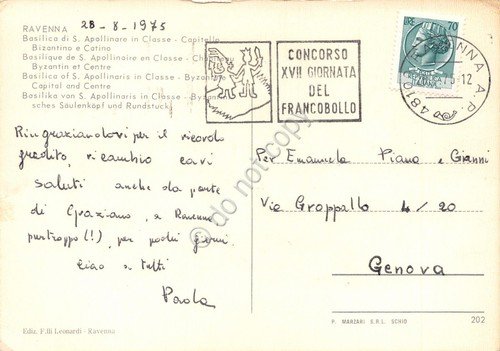 28-8-1975
RAVENNA
Basilica di S. Apollinare in Classe - Capitello
Bizantino e Catino
Basilique de S. Apollinaire en Classe -
Byzantin et Centre
Basilica of S. Apollinaris in Classe - Byzantine
Capital and Centre
Basilika von S. Apollinaris in Classe - Byzantini-
sches Säulenkopf und Rundstuck
Ringraziandovi per il ricordo
gradito, ricambio cari
saluti anche da parte
di Graziano, a Ravenna
purtroppo (!), per pochi giorni.
Ciao a tutti
Paola
Ediz. F.lli Leonardi - Ravenna
CONCORSO
XVII GIORNATA
DEL
FRANCOBOLLO
LIRE 70
RAVENNA A.P.
Per Emanuela Piano e Gianni
Via Groppallo 4/20
Genova
P. MARZARI S.R.L. SCHIO
202
do not copy